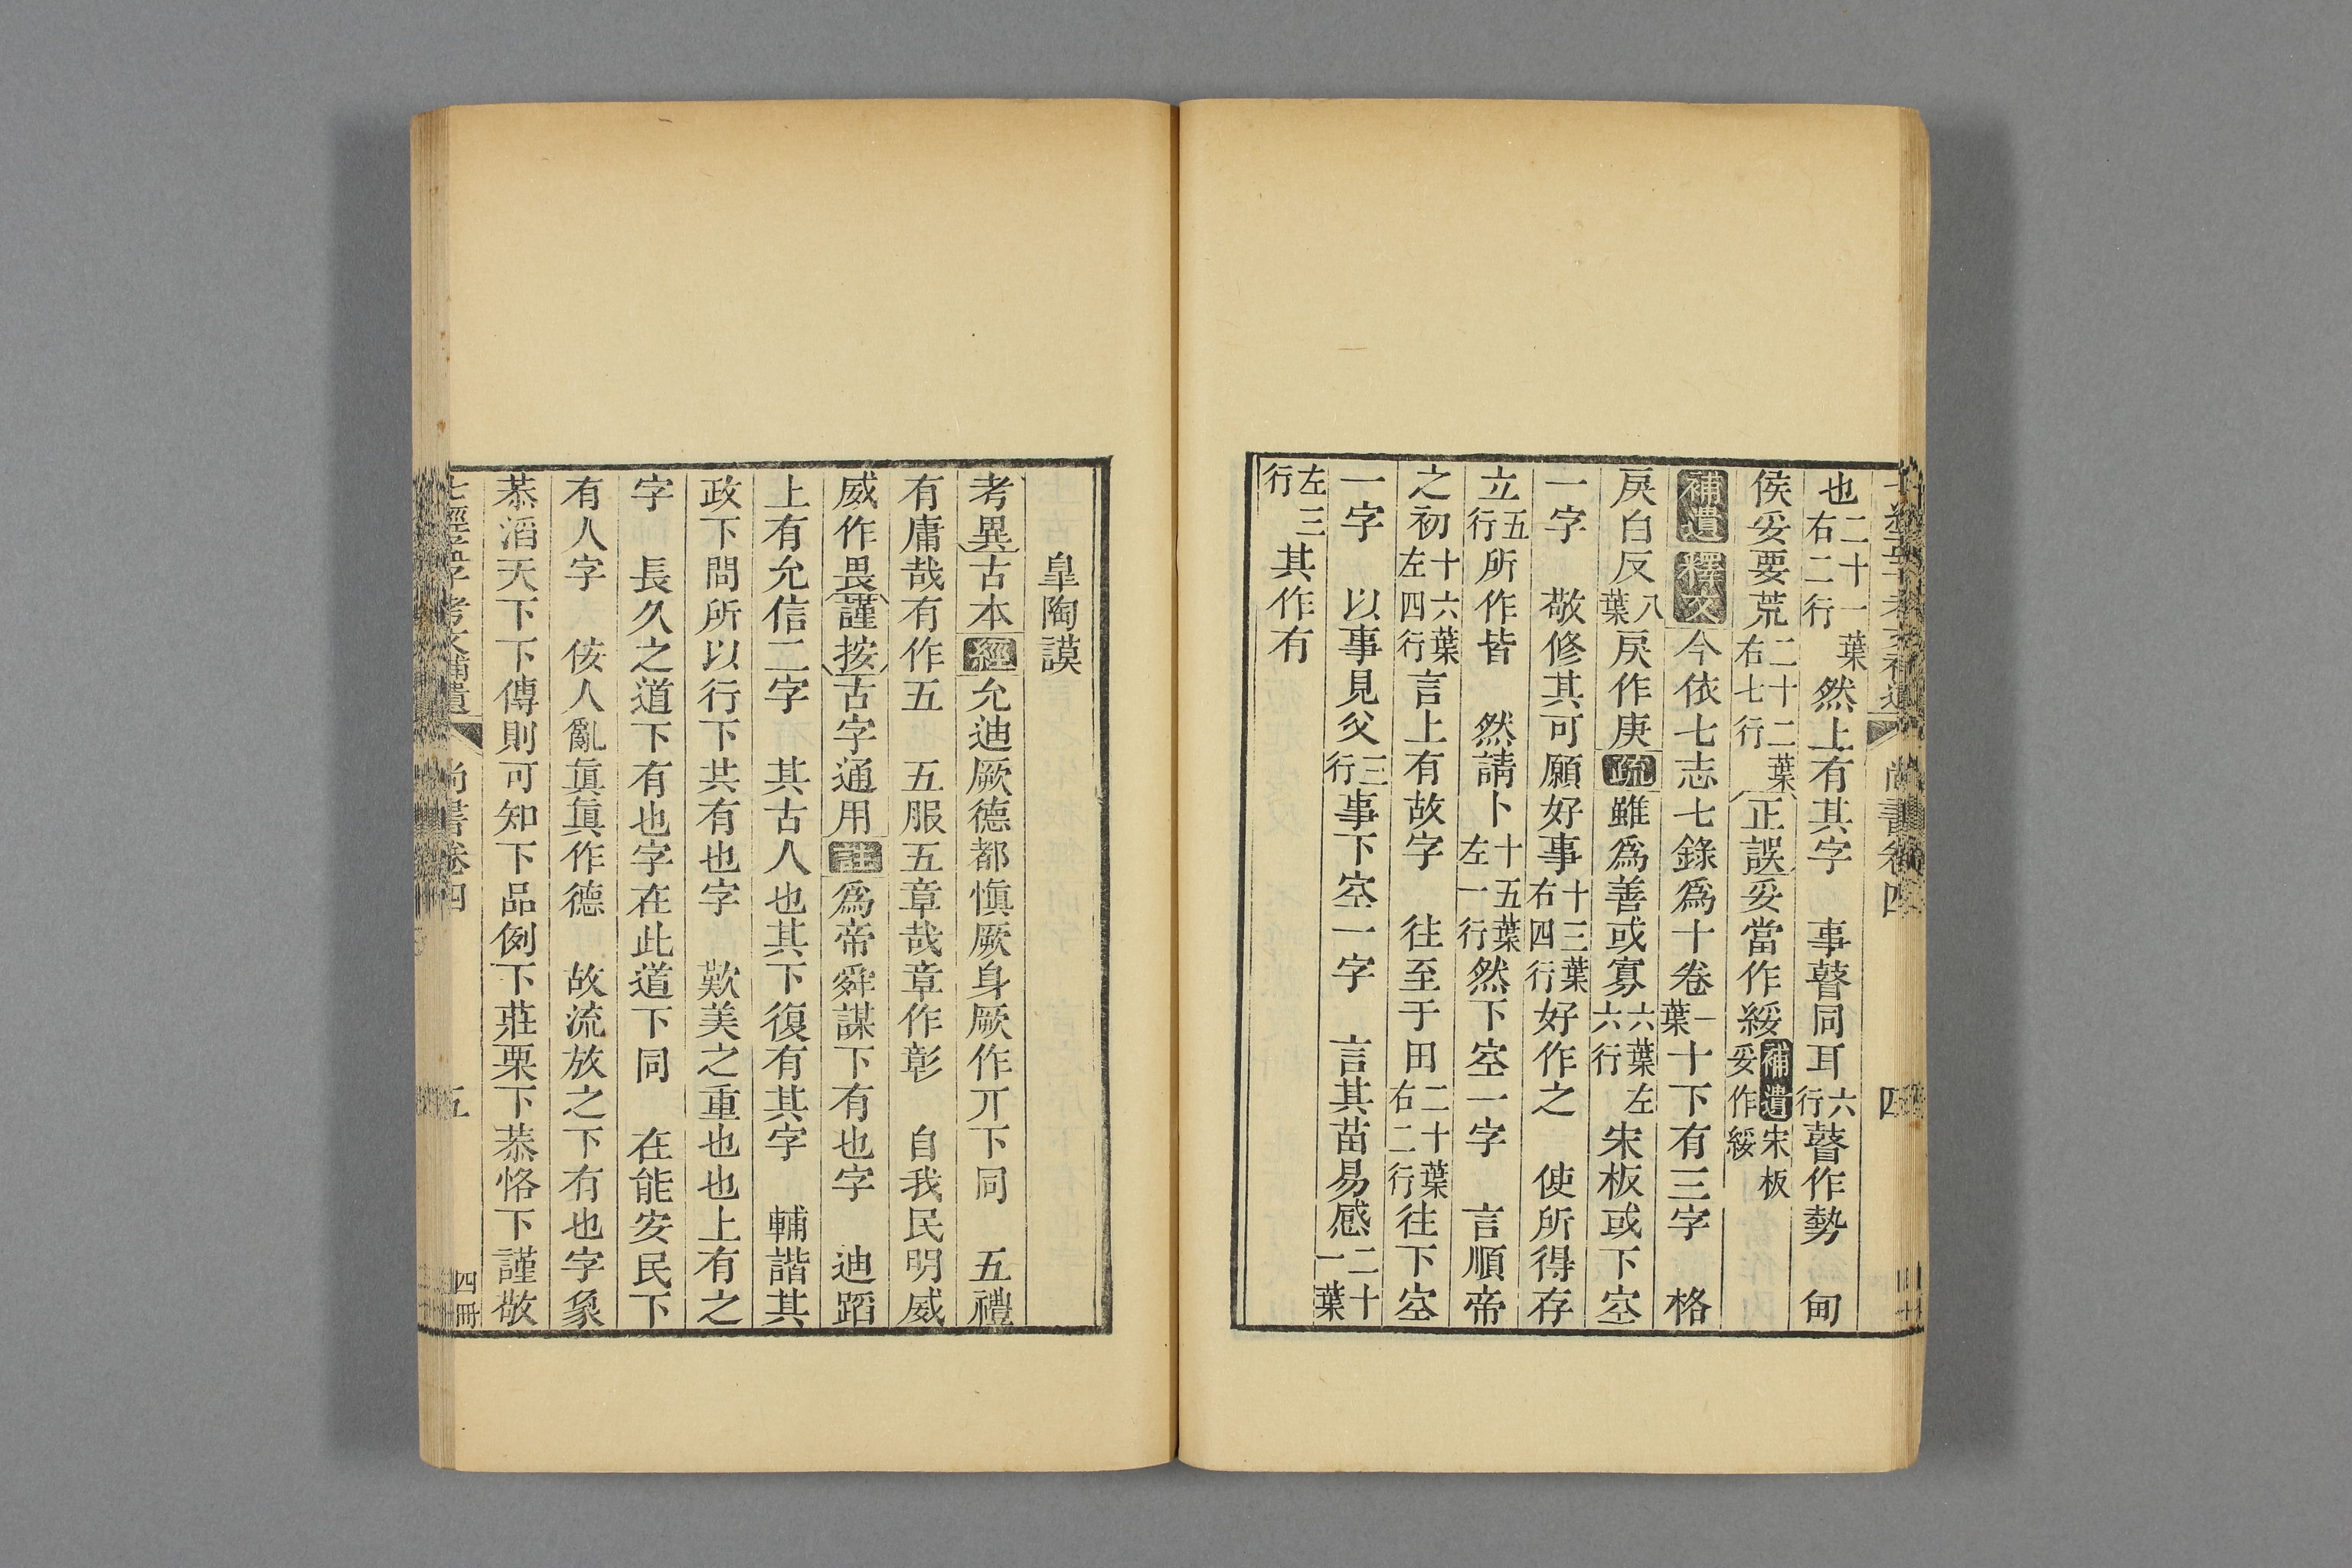 也二十一葉右二行然上有其字　事瞽同耳六行瞽作勢　甸
侯妥要荒二十二葉右七行正誤妥當作綏補遺宋板妥作綏
補遺釋文今依七志七錄爲十卷一葉十下有三字　格
戾白反八葉戾作庚疏雖爲善或寡六葉左六行宋板或下空
一字　敬修其可願好事十三葉右四行好作之　使所得存
立五行所作皆　然請卜十五葉左一行然下空一字　言順帝
之初十六葉左四行言上有故字　往至于田二十葉右二行往下空
一字　以事見父三行事下空一字　言其苗易感二十一葉
左三行其作有
皐陶謨
考異古本經允迪厥德都愼厥身厥作丌下同　五禮
有庸哉有作五　五服五章哉章作彰　自我民明威
威作畏謹按古字通用註爲帝舜謀下有也字　迪蹈
上有允信二字　其古人也其下復有其字　輔諧其
政下問所以行下共有也字　歎美之重也也上有之
字　長久之道下有也字在此道下同　在能安民下
有人字　侫人亂眞眞作德　故流放之下有也字象
恭滔天下下傳則可知下品例下莊栗下恭恪下謹敬
七經孟子考文補遺　尚書卷四　五　四冊